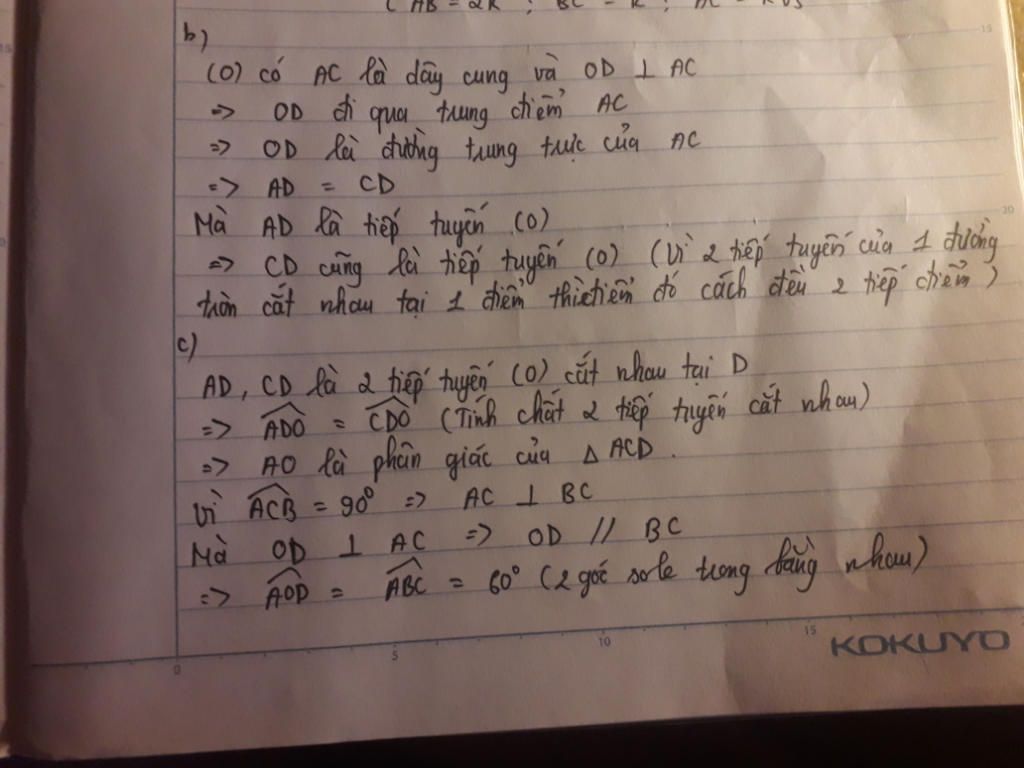 ( AB = 2R ; BC = R ; AC = R√3
b)
(O) có AC là dây cung và OD ⊥ AC
=> OD đi qua trung điểm AC
=> OD là đường trung trực của AC
=> AD = CD
Mà AD là tiếp tuyến (O)
=> CD cũng là tiếp tuyến (O) (Vì 2 tiếp tuyến của 1 đường
tròn cắt nhau tại 1 điểm thì điểm đó cách đều 2 tiếp điểm)
c)
AD, CD là 2 tiếp tuyến (O) cắt nhau tại D
=> \widehat{ADO} = \widehat{CDO} (Tính chất 2 tiếp tuyến cắt nhau)
=> AO là phân giác của △ ACD.
Vì \widehat{ACB} = 90° => AC ⊥ BC
Mà OD ⊥ AC => OD // BC
=> \widehat{AOD} = \widehat{ABC} = 60° (2 góc sole trong bằng nhau)
0 5 10 15
KOKUYO